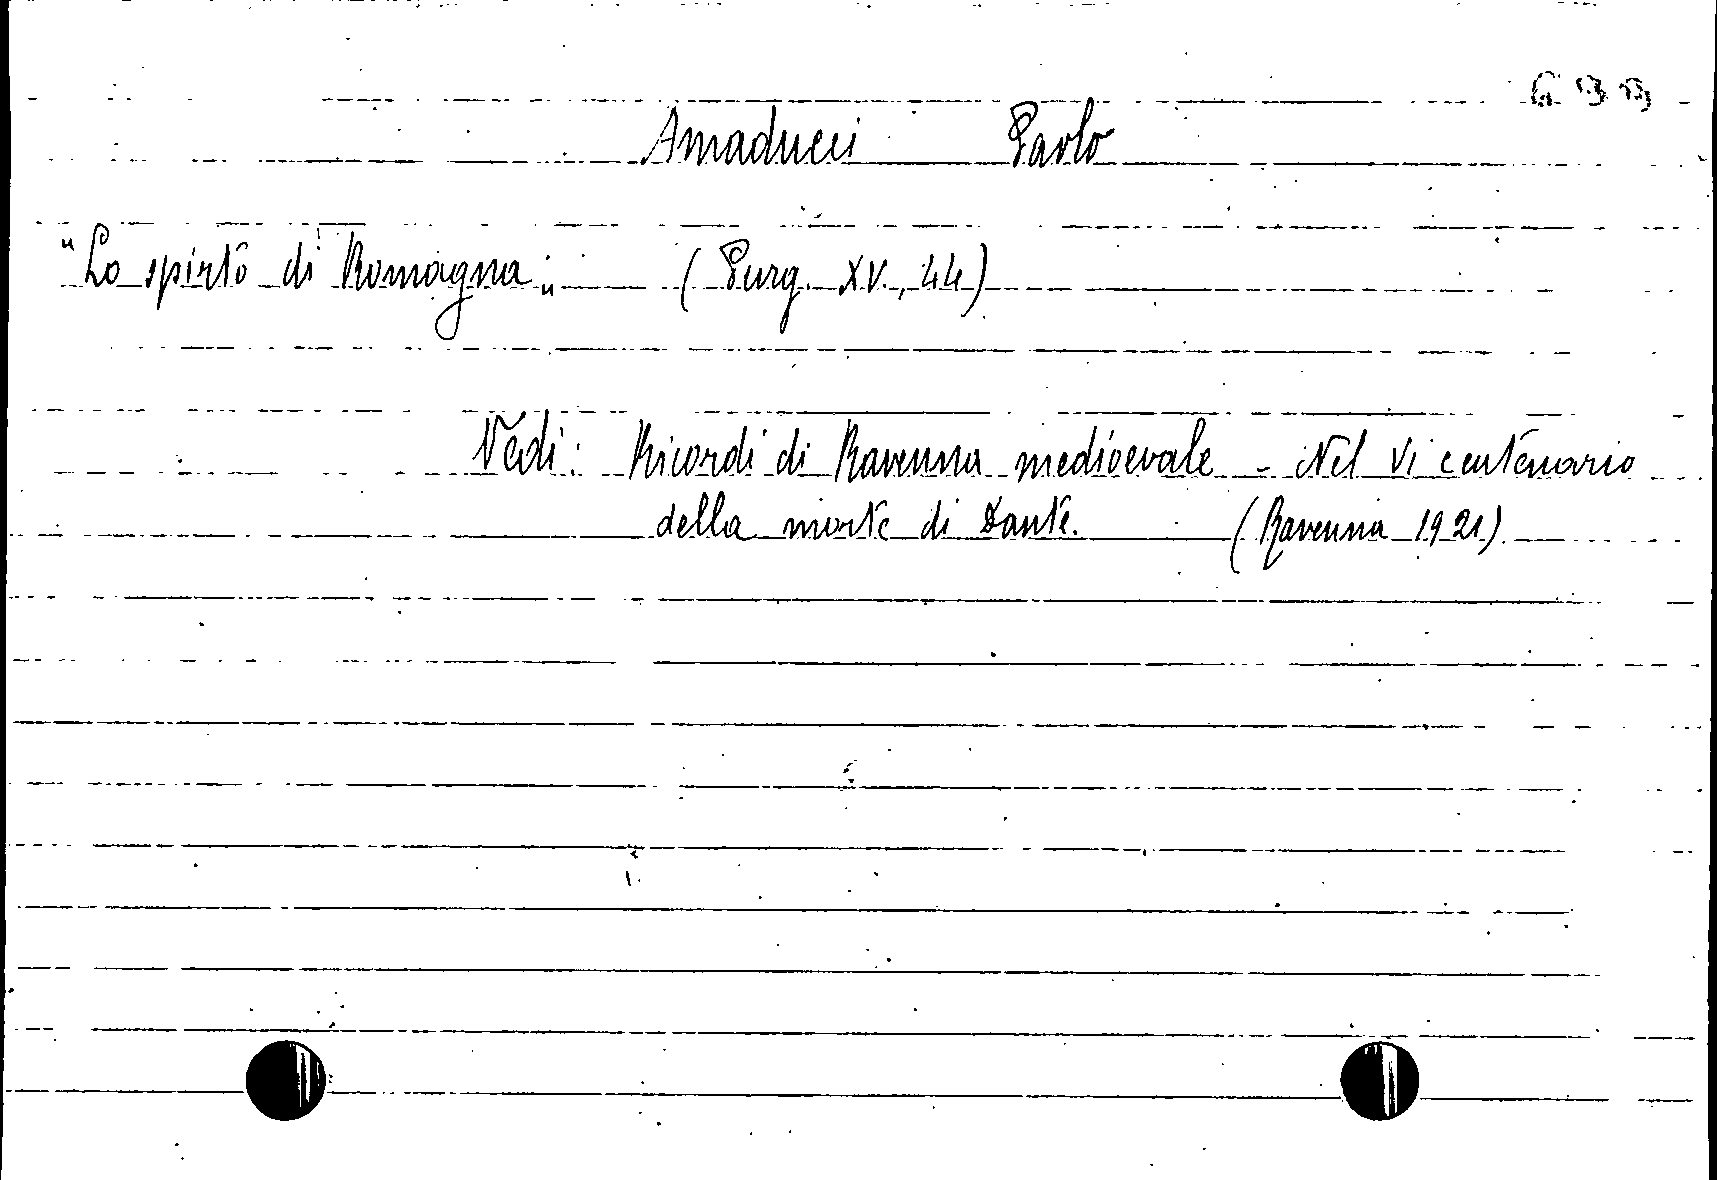 Amaducci Paolo
"Lo spirto di Romagna„ (Purg. XV., 44)
Vedi: Ricordi di Ravenna medioevale - Nel VI centenario
della morte di Dante. (Ravenna 1921)